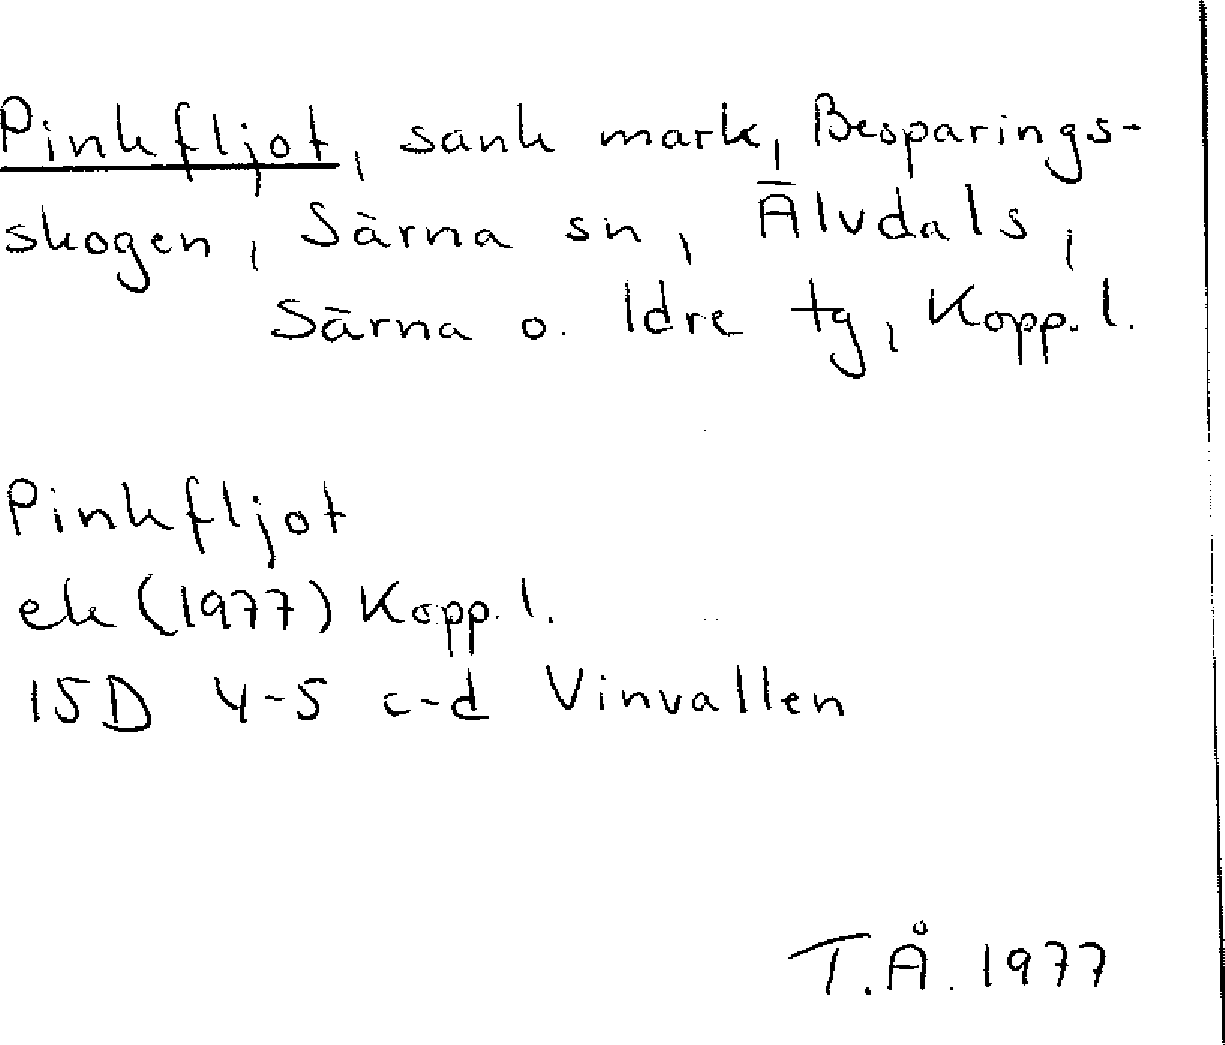 Pinkfljot, sank mark, Besparings-
skogen, Särna sn, Älvdals,
Särna o. Idre tg, Kopp. l.
Pinkfljot
ek (1977) Kopp. l.
15D 4-5 c-d Vinvallen
T.Å. 1977